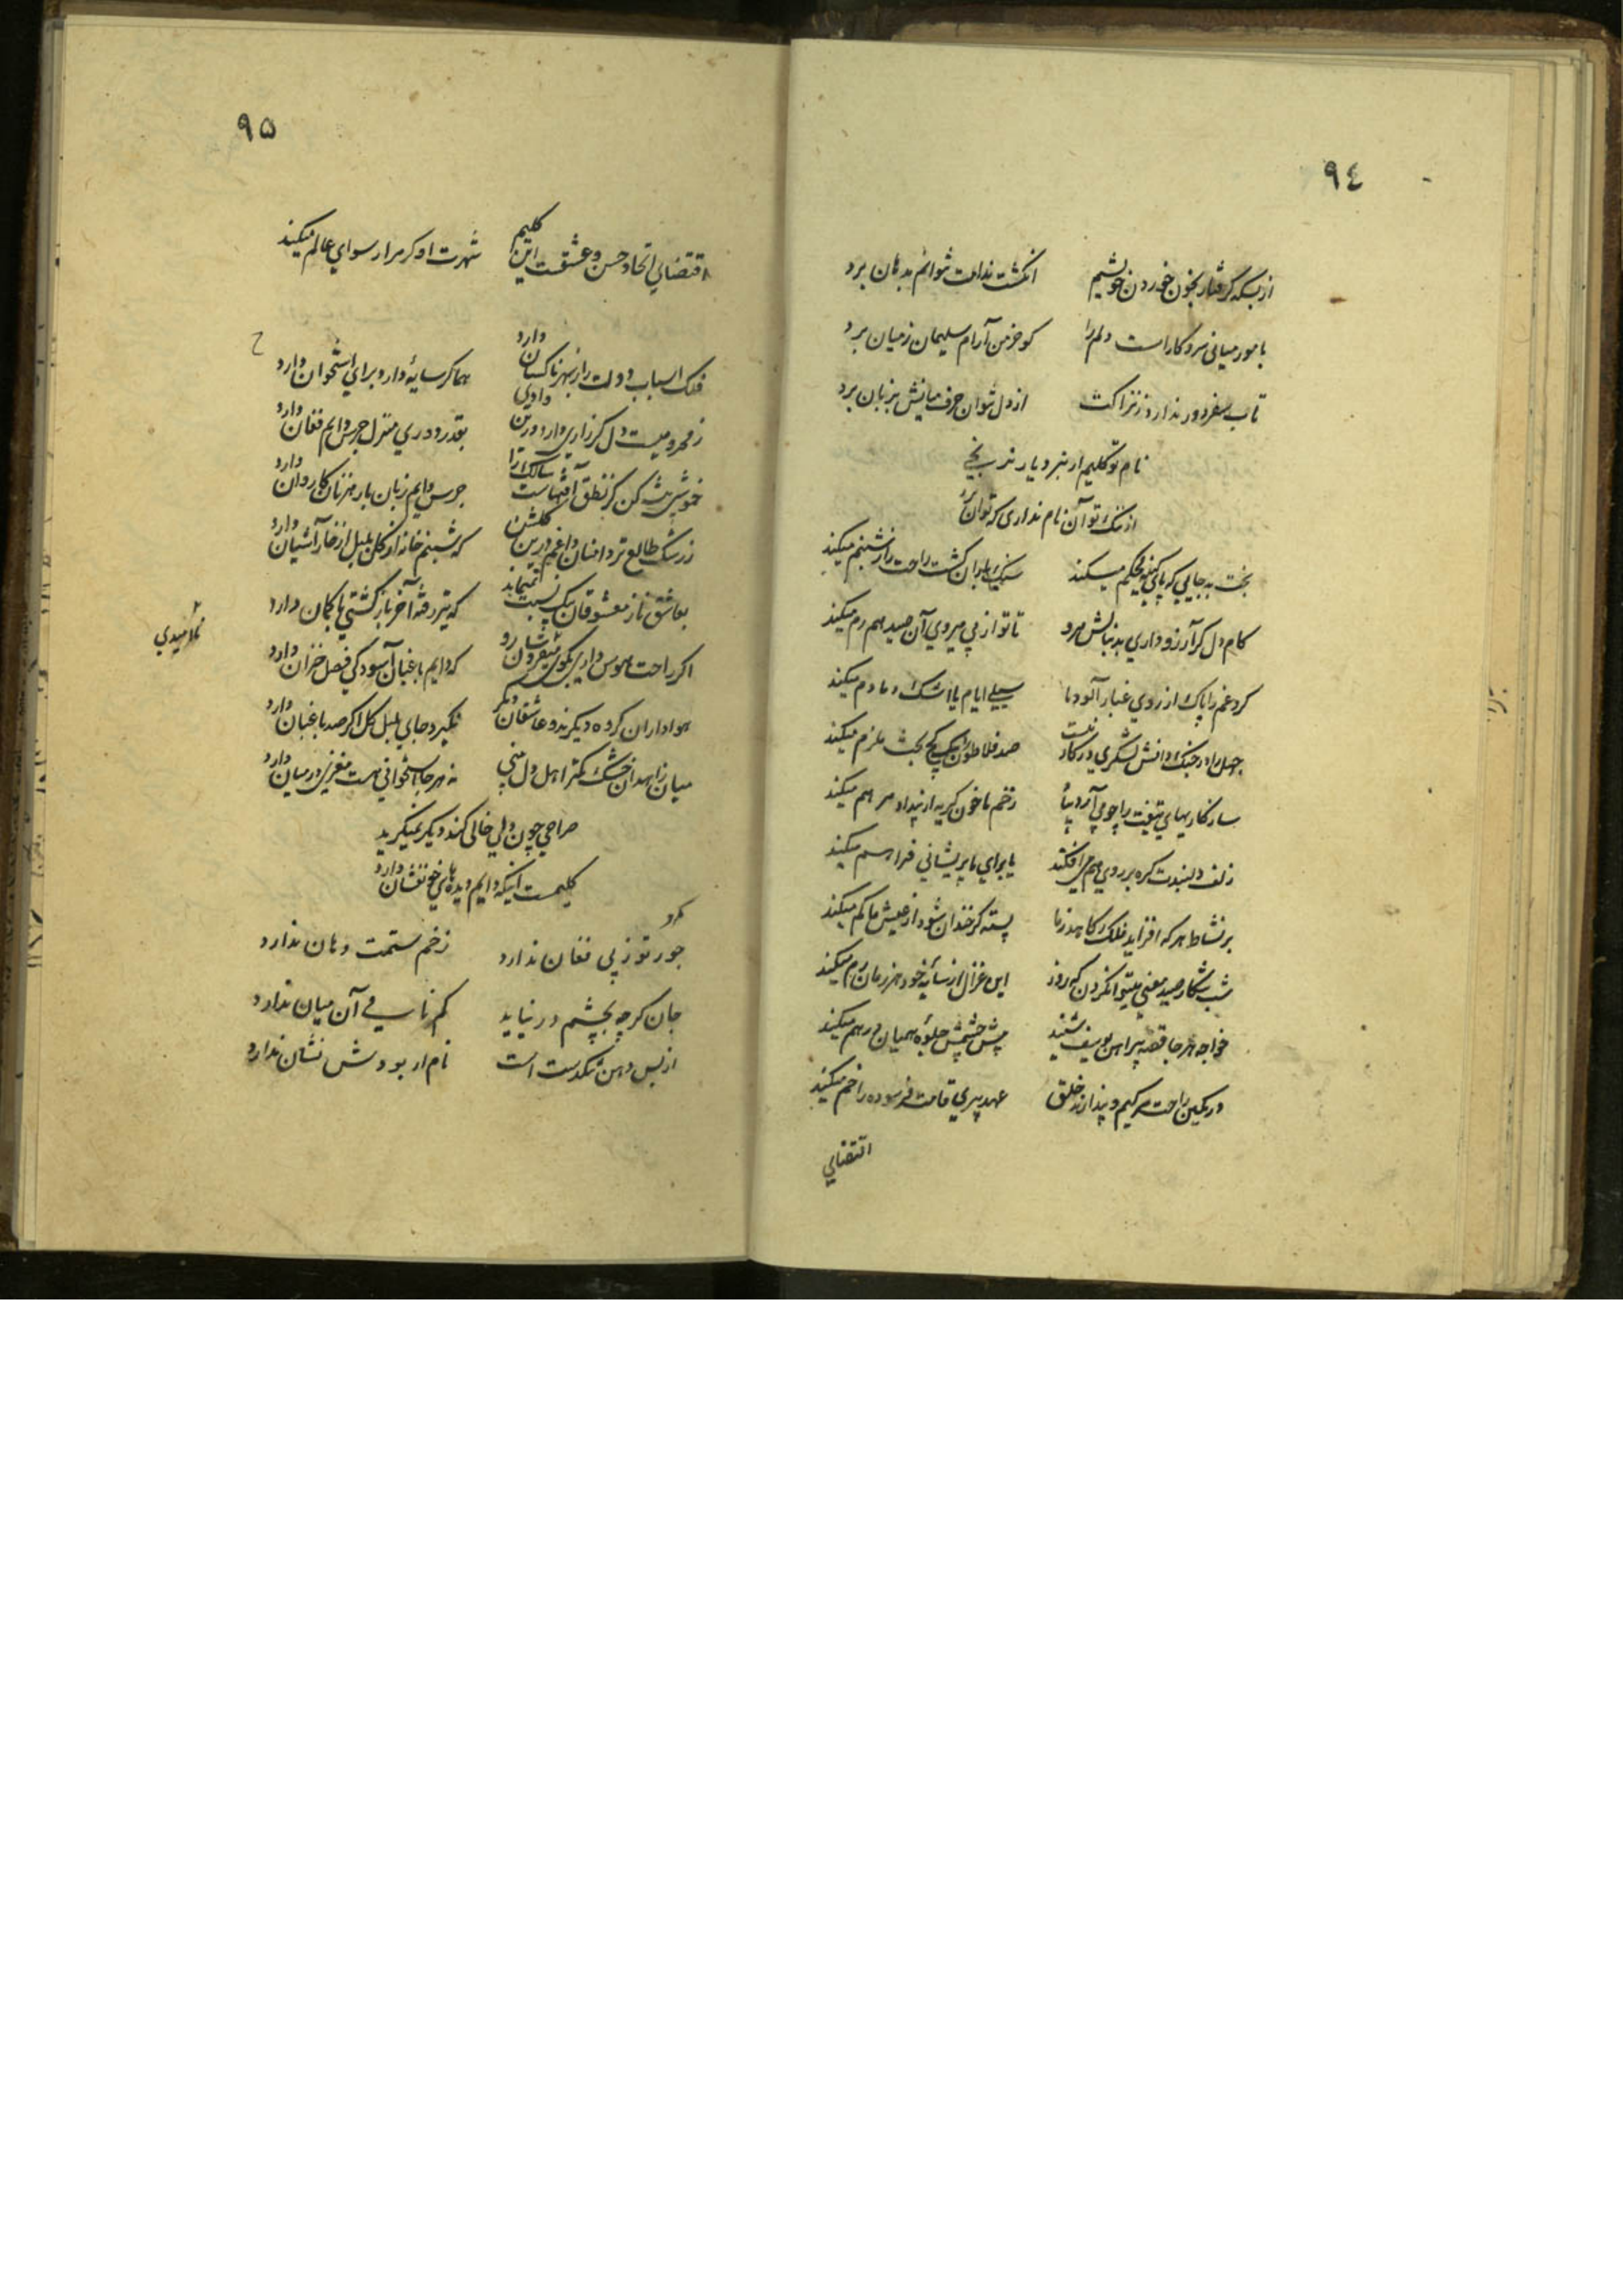 ٩٤
از بسکه گرفتار بخون خوردن خویشیم انگشت ندامت نتوانم بدهان برد
با مور میانی سر و کار است دلم را کو خرمن آرام سلیمان ز میان برد
تاب سفر دور ندارد ز نزاکت از دل نتوان حرف میانش بزبان برد
نام تو کلیم ار نبرد یار نرنجی
از ننک تو آن نام نداری که توان برد
بخت بد جایی که پای کینه محکم میکند سنک باران کشت راحت را ز شبنم میکند
کام دل کر آرزو داری بدنبالش مرو تا تو از پی میروی آن صید هم رم میکند
کرد غم را پاک از روی غبار آلود ما سیلی ایام یا اشک دمادم میکند
جهل را در جنک دانش لشکری در کار نیست صد فلاطون را یک کج بحث ملزم میکند
سازکاریهای تیغت را چو می آرد بیاد زخم ما خون کریه از بیداد مرهم میکند
زلف دلبندت کره بر روی هم می افکند یا برای ما پریشانی فراهم میکند
بر نشاط هر که افزاید فلک کاهد ز ما پسته کر خندان شود از عیش ما کم میکند
شب شکار صید معنی میتوان کردن که روز این غزال از سایه خود هر زمان رم میکند
خواجه هر جا قصه پیراهن یوسف شنید پیش چشمش جلوه همیان درهم میکند
در کمین راحت مرکیم و پندارند خلق عهد پیری قامت فرسوده را خم میکند
اقتضای
٩۵
اقتضای اتحاد حسن و عشقست این کلیم شهرت او کر مرا رسوای عالم میکند
فلک اسباب دولت را ز بهر ناکسان دارد هما کر سایهٔ دارد برای استخوان دارد
ز محرومیست دل کر زاریی دارد درین وادی بقدر دوری منزل جرس دایم فغان دارد
خموشی پیشه کن کز نطق آفتهاست سالک را جرس دایم زبان با رهزنان کاروان دارد
ز رشک طالع تردامنان داغم درین کلشن که شبنم خانه از کل بلبل از خار آشیان دارد
بعاشق ناز معشوقان بیک نسبت نمیماند که تیر رفته آخر بازکشتی با کمان دارد
اکر راحت هوس داری بکوی بیقراران رو که دایم باغبان آسودکی فصل خزان دارد
هواداران کرده دیکرند و عاشقان دیکر نکیرد جای بلبل کل اکر صد باغبان دارد
میان زاهدان خشک کمتر اهل دل بینی نه هر جا استخوانی هست مغزی در میان دارد
صراحی چون دلی خالی کند دیکر نمیکرید
کلیمست اینکه دایم دیده های خونفشان دارد
جور تو ز پی فغان ندارد زخم ستمت دهان ندارد
جان کر چه بچشم در نیاید کم نازکی آن میان ندارد
از بس دهن تنکدست است نام ار بودش نشان ندارد